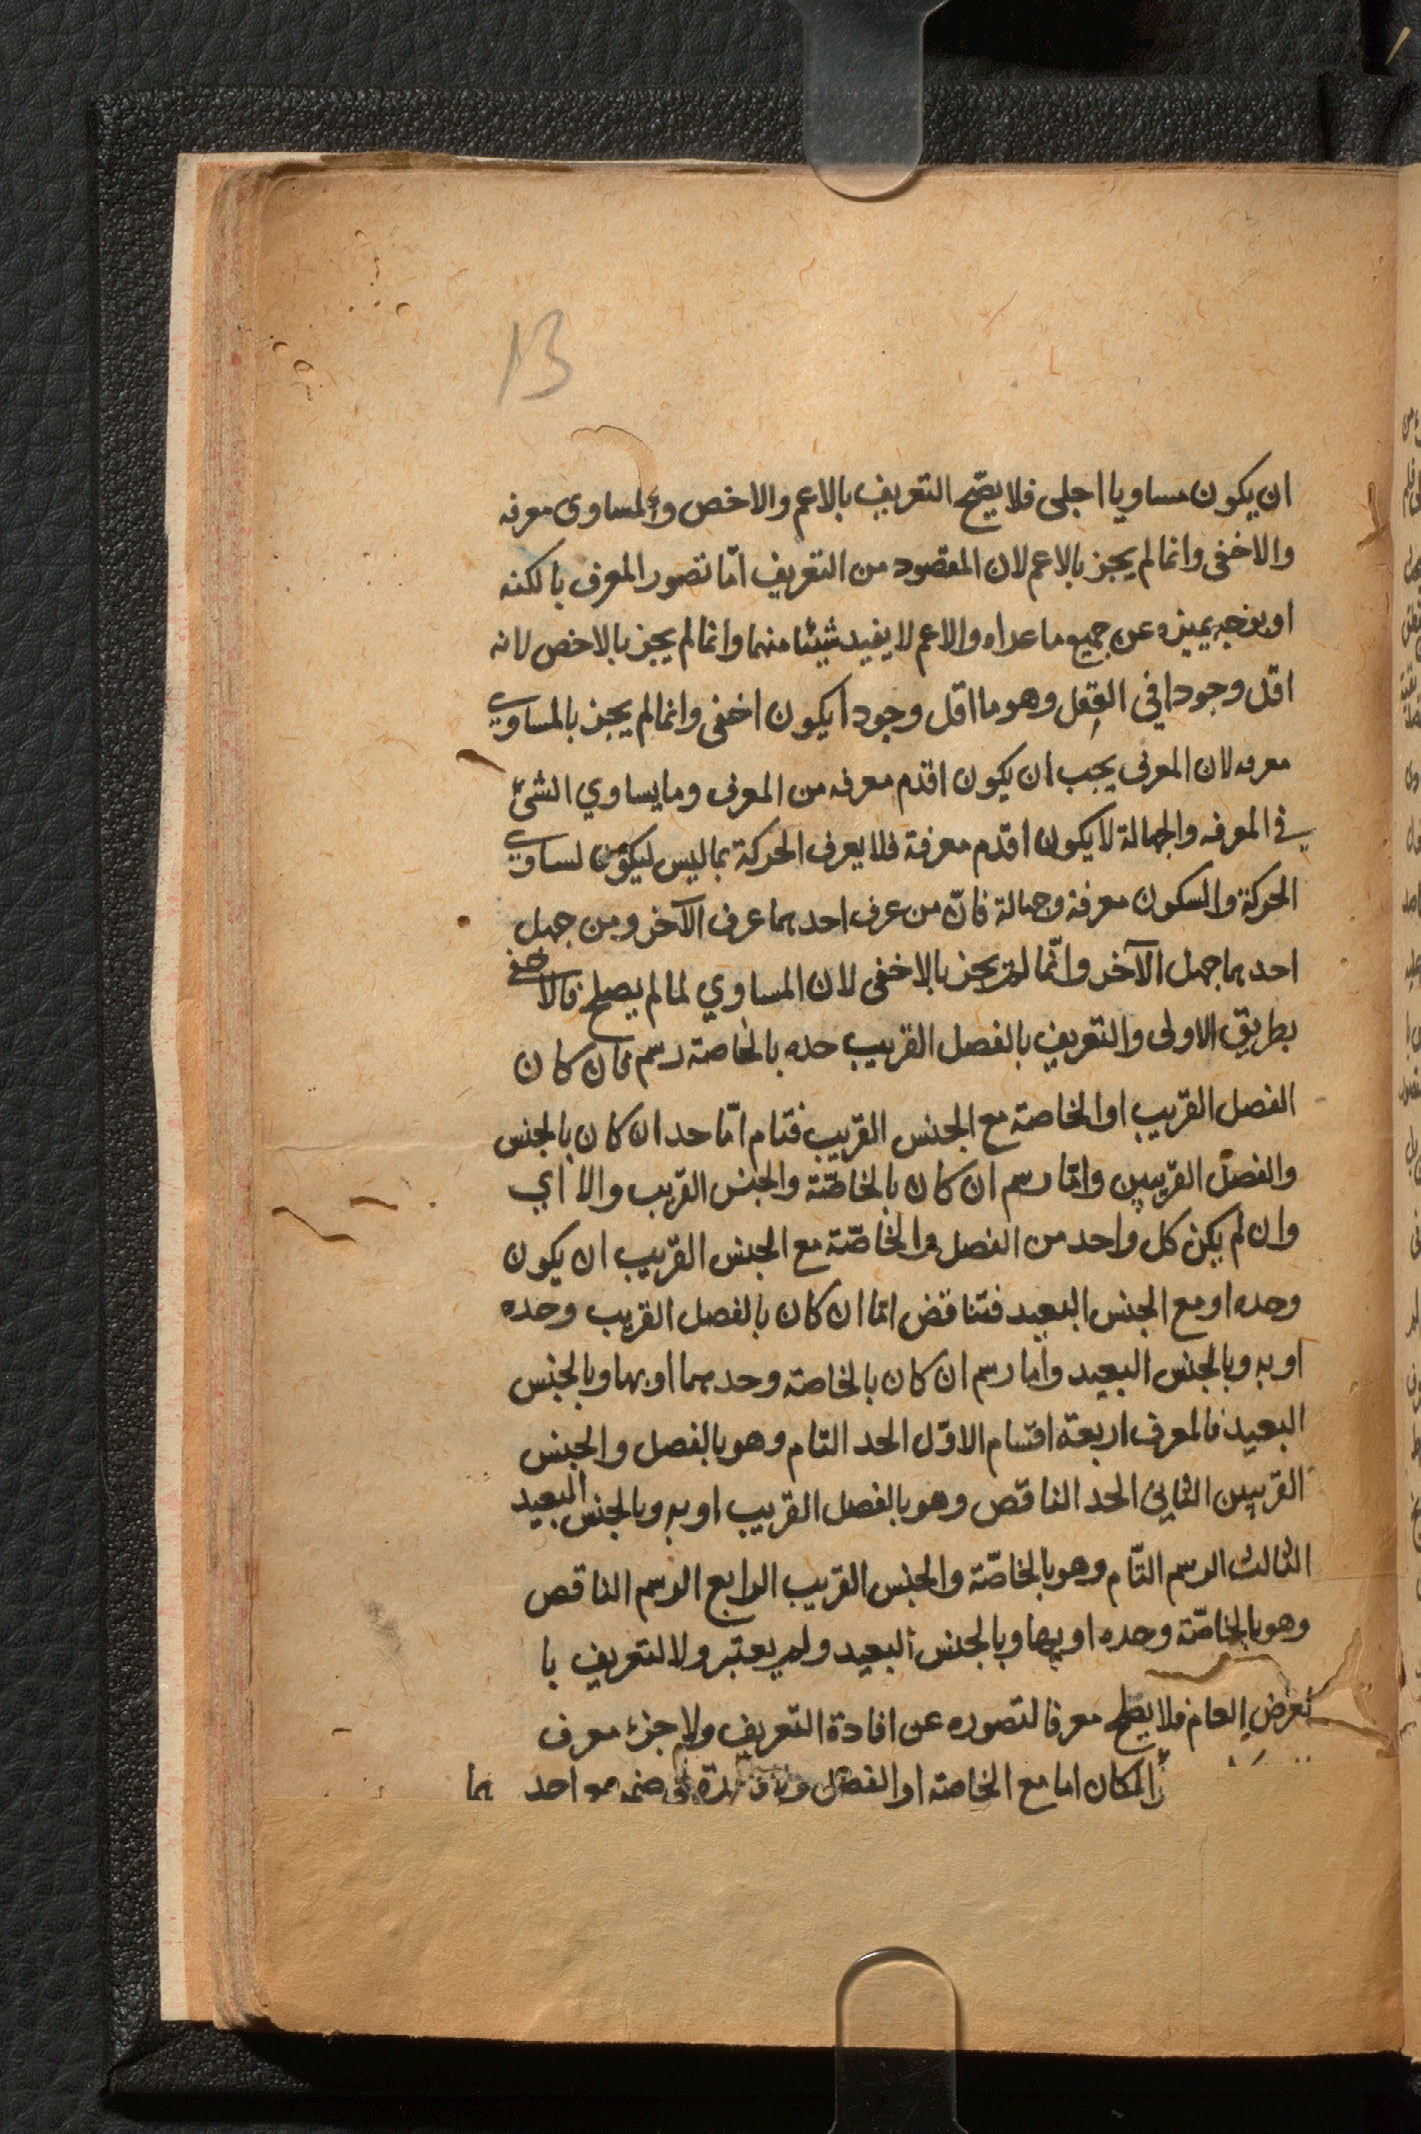 13
ان يكون مساويا اجلى فلا يصّح التعريف بالاعم والاخص والمساوى معرفه
والاخفى وانما لم يجز بالاعم لان المقصود من التعريف امّا تصور المعرف بالكنه
او بوجه يميزه عن جميع ما عداه والاعم لا يفيد شيئا منهما وانما لم يجز بالاخص لانه
اقل وجودا في العقل وهو ما اقل وجودا يكون اخفى وانما لم يجز بالمساوي
معرفه لان المعرف يجب ان يكون اقدم معرفه من المعرف وما يساوي الشئ
في المعرفه والجهالة لا يكون اقدم معرفة فلا يعرف الحركة بما ليس بسكون لتساوي
الحركة والسكون معرفة وجهالة فانّ من عرف احدهما عرف الآخر ومن جهل
احدهما جهل الآخر وانّما لم يجز بالاخفى لان المساوي لما لم يصلح فالاخفى
بطريق الاولى والتعريف بالفصل القريب حد بالخاصة رسم فان كان
الفصل القريب او الخاصة مع الجنس القريب فتام امّا حد ان كان بالجنس
والفصل القريبين وامّا رسم ان كان بالخاصّة والجنس القريب والا أي
وان لم يكن كل واحد من الفصل والخاصّة مع الجنس القريب ان يكون
وحده او مع الجنس البعيد فتناقض امّا ان كان بالفصل القريب وحده
او به وبالجنس البعيد وأما رسم ان كان بالخاصة وحدهما او بها وبالجنس
البعيد فالمعرف اربعة اقسام الاوّل الحد التام وهو بالفصل والجنس
القريبين الثاني الحد الناقص وهو بالفصل القريب او به وبالجنس البعيد
الثالث الرسم التّام وهو بالخاصّة والجنس القريب الرابع الرسم الناقص
وهو بالخاصّة وحده او بها وبالجنس البعيد ولم يعتبروا التعريف با
لعرض العام فلا يصلح معرفا لتصوره عن افادة التعريف ولا جزء معرف
المكان اما مع الخاصة او الفصل ضمه مواحد هما